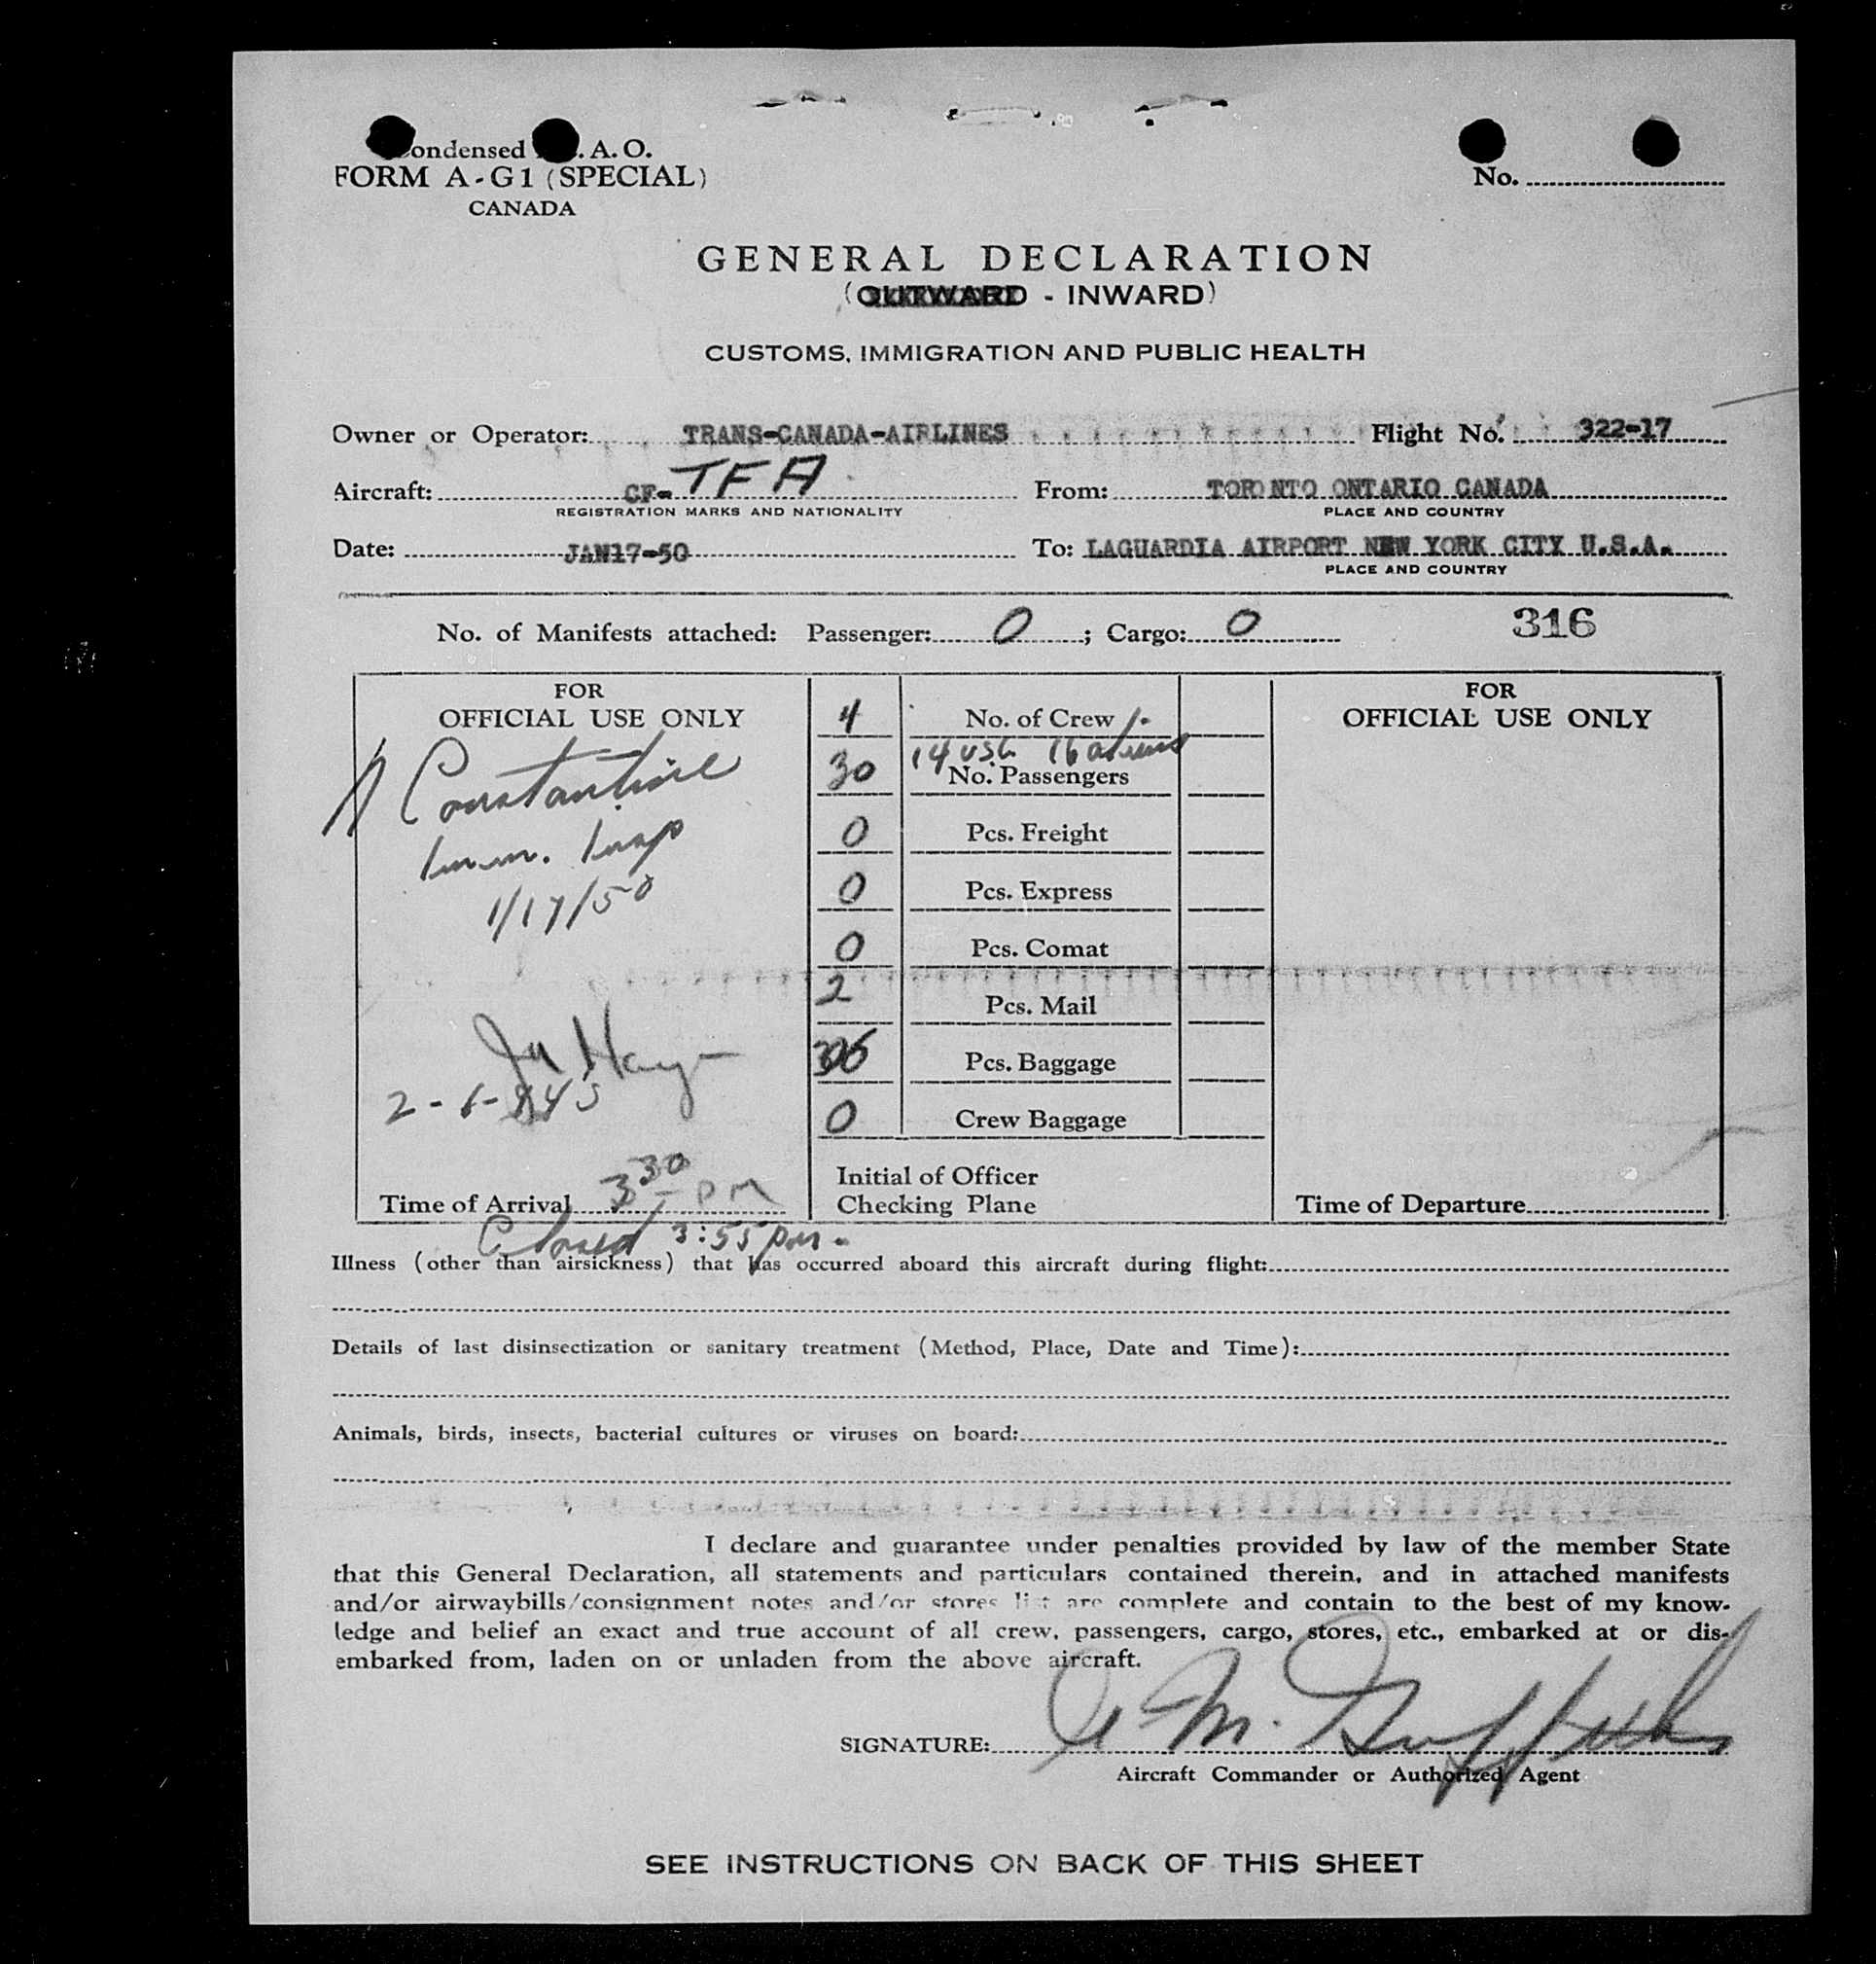 ondensed . A. O.
FORM A-G1 (SPECIAL)
CANADA
No.
GENERAL DECLARATION
(OUTWARD - INWARD)
CUSTOMS, IMMIGRATION AND PUBLIC HEALTH
Owner or Operator: TRANS-CANADA-AIRLINES Flight No. 322-17
Aircraft: CF- TFA From: TORONTO ONTARIO CANADA
REGISTRATION MARKS AND NATIONALITY PLACE AND COUNTRY
Date: JAN17-50 To: LAGUARDIA AIRPORT NEW YORK CITY U.S.A.
PLACE AND COUNTRY
No. of Manifests attached: Passenger: 0 ; Cargo: 0 316
FOR
OFFICIAL USE ONLY
Constantine
Imm. Insp
1/17/50
Time of Arrival 3 30 PM
Closed 3:55 pm.
4 No. of Crew
14 USC 16 aliens
30 No. Passengers
0 Pcs. Freight
0 Pcs. Express
0 Pcs. Comat
2 Pcs. Mail
Pcs. Baggage
0 Crew Baggage
Initial of Officer
Checking Plane
FOR
OFFICIAL USE ONLY
Time of Departure
Illness (other than airsickness) that has occurred aboard this aircraft during flight:
Details of last disinsectization or sanitary treatment (Method, Place, Date and Time):
Animals, birds, insects, bacterial cultures or viruses on board:
I declare and guarantee under penalties provided by law of the member State
that this General Declaration, all statements and particulars contained therein, and in attached manifests
and/or airwaybills/consignment notes and/or stores list are complete and contain to the best of my know-
ledge and belief an exact and true account of all crew, passengers, cargo, stores, etc., embarked at or dis-
embarked from, laden on or unladen from the above aircraft.
SIGNATURE:
Aircraft Commander or Authorized Agent
SEE INSTRUCTIONS ON BACK OF THIS SHEET